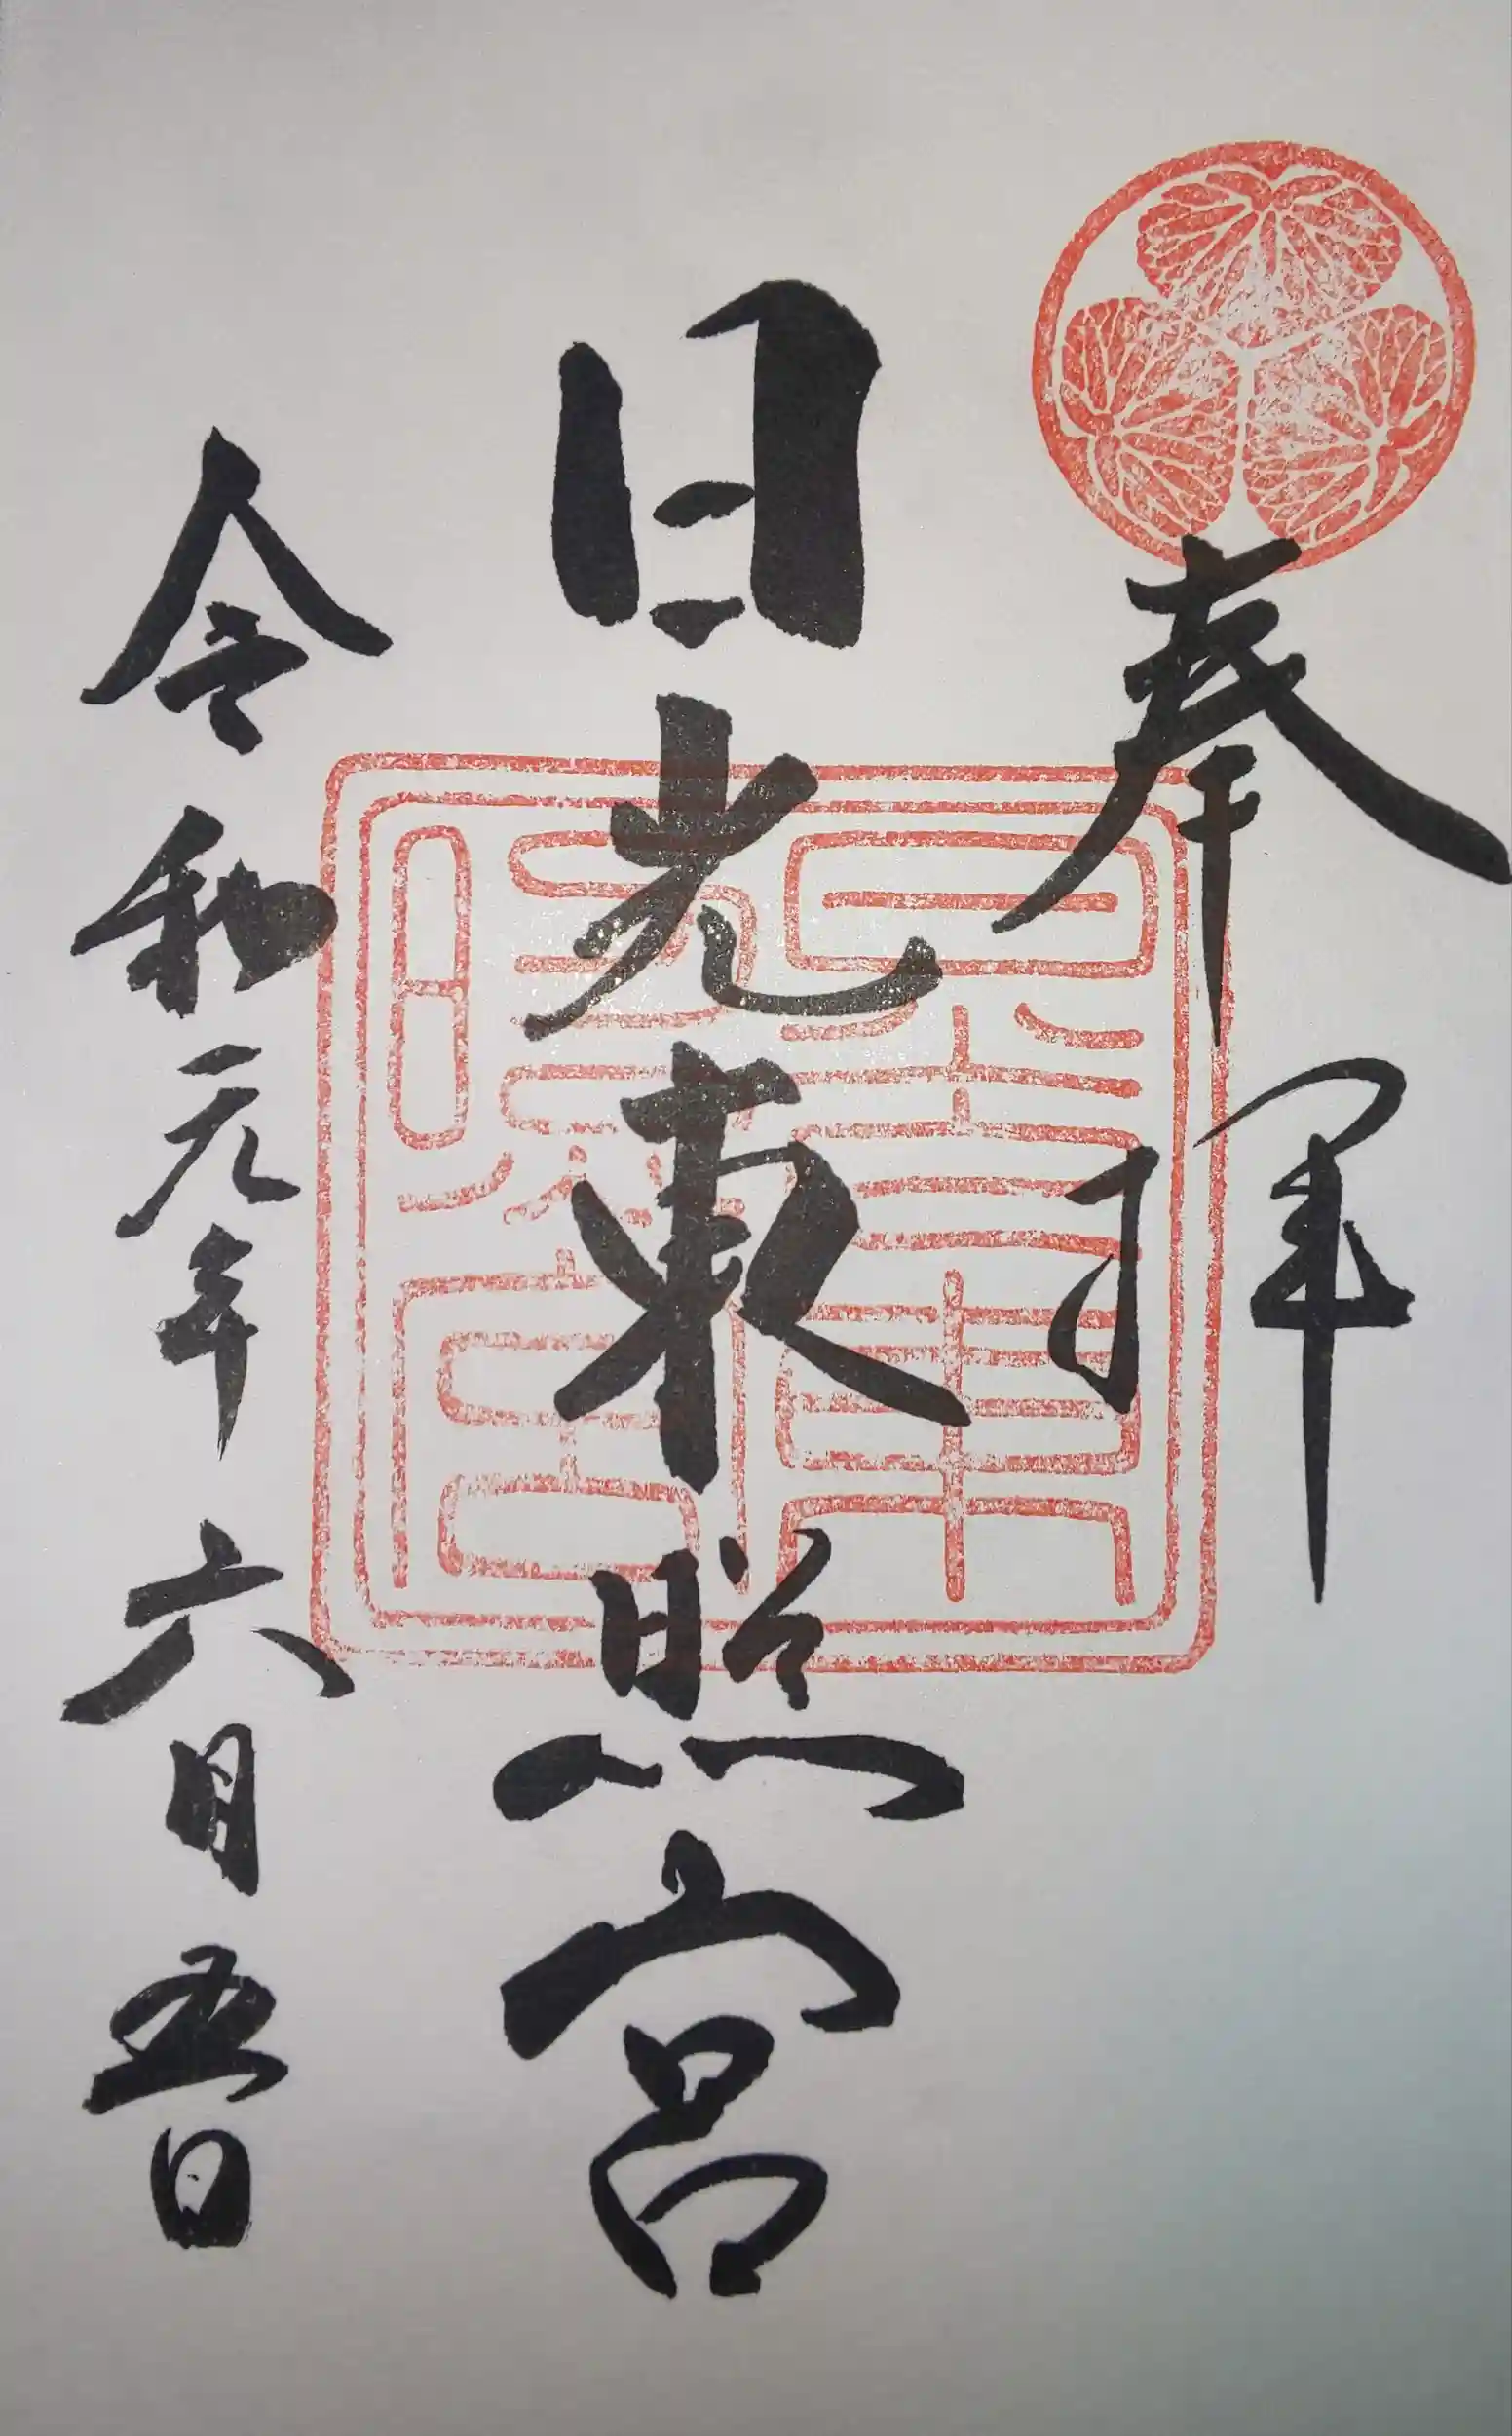 奉拝
日光東照宮
令和元年六月五日
日光東照宮